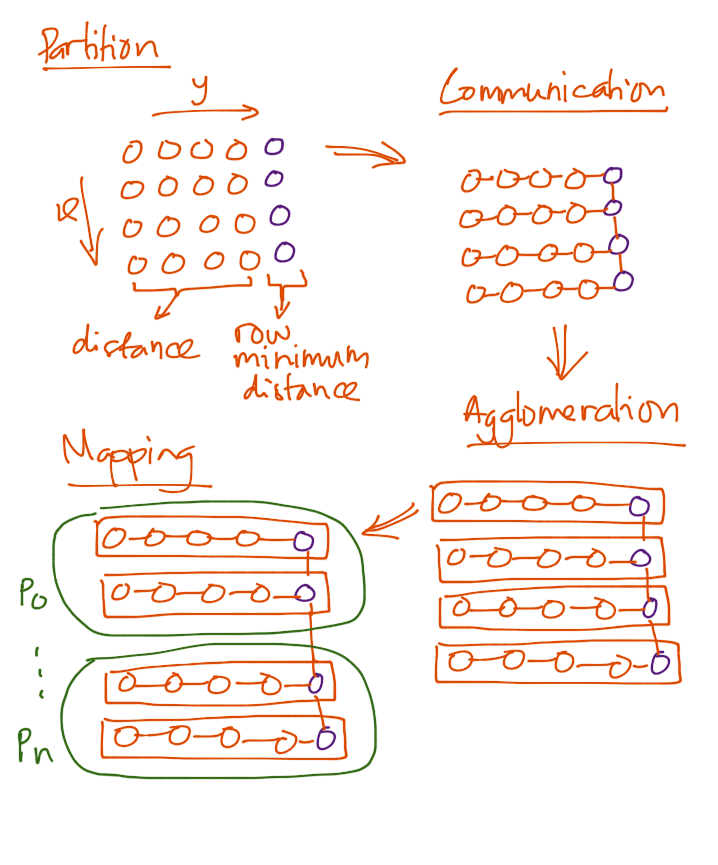 Partition
y
x
distance
row
minimum
distance
Communication
Agglomeration
Mapping
P0
Pn